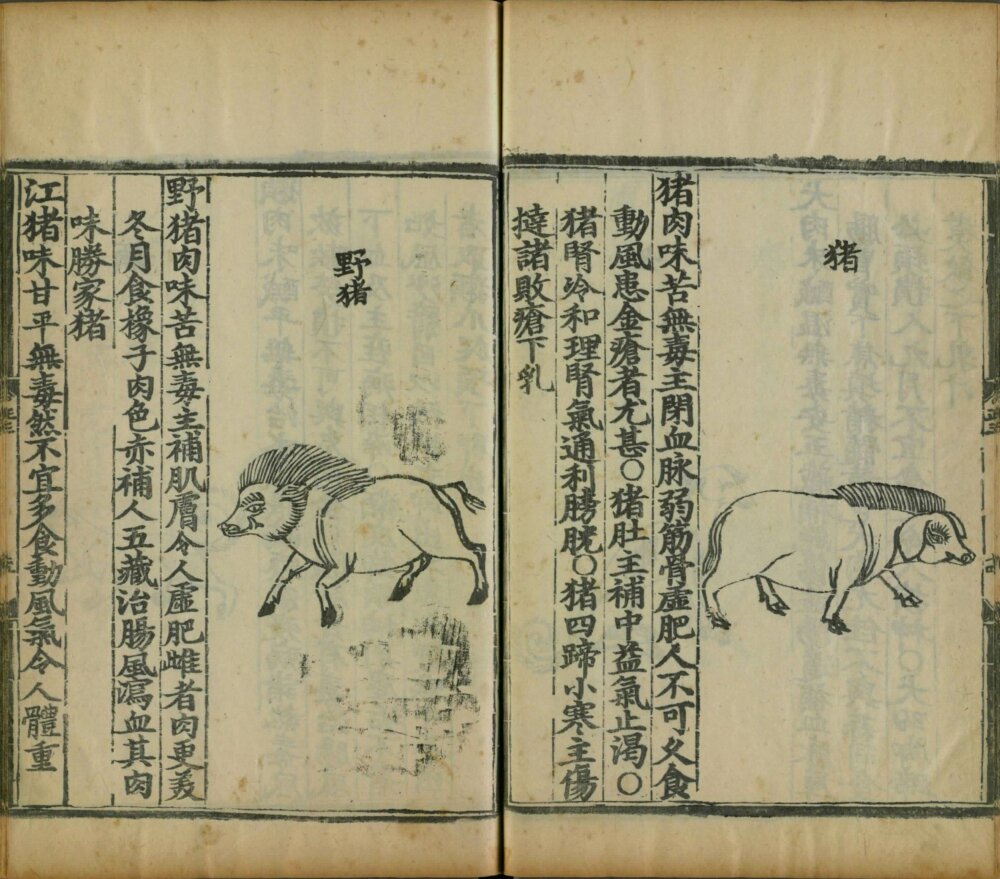 猪
猪肉味苦無毒主閉血脉弱筋骨虚肥人不可乆食
動風患金瘡者尤甚〇猪肚主補中益氣止渴〇
猪腎冷和理腎氣通利膀胱〇猪四蹄小寒主傷
撻諸敗瘡下乳
野猪
野猪肉味苦無毒主補肌膚令人虚肥雌者肉更美
冬月食橡子肉色赤補人五藏治腸風瀉血其肉
味勝家猪
江猪味甘平無毒然不宜多食動風氣令人體重